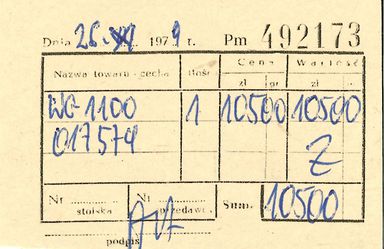 Dnia 26. XI. 1979 r. Pm 492173
Nazwa towaru - cecha Ilość Cena Wartość
zł gr zł
WG-1100 1 10500 10500
017574 Z
Nr Nr Sum. 10500
stoiska sprzedawc.
podpis